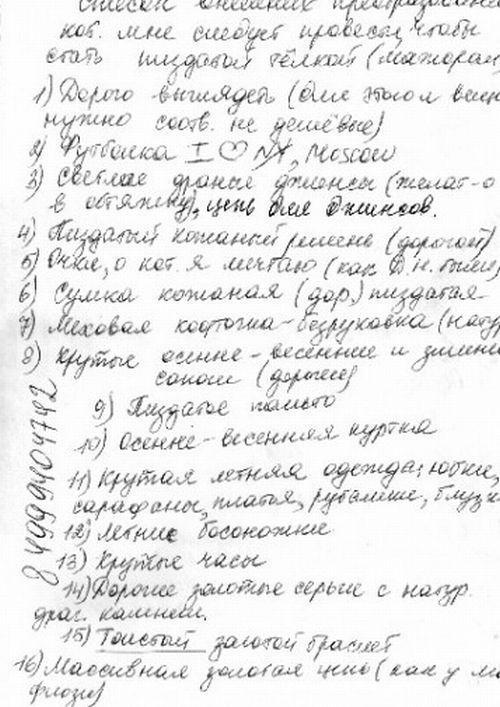 Список внешних преобразований
кот. мне следует провести, чтобы
стать пиздатой тёлкой (мажоркой
1) Дорого выглядеть (для этого вещи
нужно соотв. не дешёвые)
2) Футболка I ♡ NY, Moscow
3) Светлые драные джинсы (желат-о
в обтяжку), цепь для джинсов.
4) Пиздатый кожаный ремень (дорогой)
5) Очки, о кот. я мечтаю (как
6) Сумка кожаная (дор.) пиздатая
7) Меховая кофточка-безрукавка (нату
8) Крутые осенне-весенние и зимни
сапоги (дорогие)
9) Пиздатое пальто
10) Осенне-весенняя куртка
11) Крутая летняя одежда: юбки,
сарафаны, платья, рубашки, блузк
12) Летние босоножки
13) Крутые часы
14) Дорогие золотые серьги с натур.
драг. камнем.
15) Толстый золотой браслет
16) Массивная золотая цепь (как у
8 4999404742